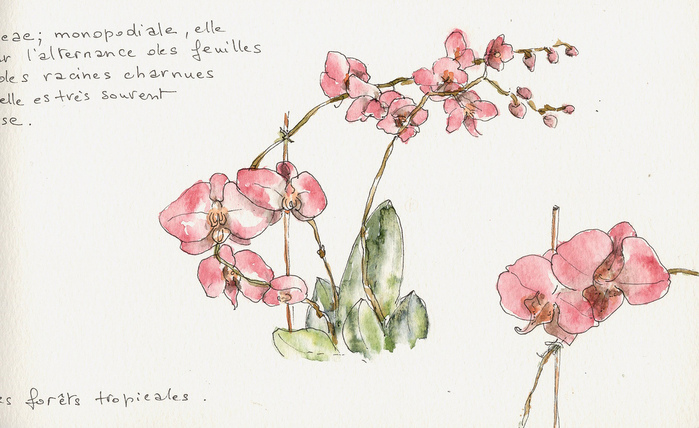 eae; monopodiale, elle
r l'alternance des feuilles
des racines charnues
elle est très souvent
se.
es forêts tropicales.